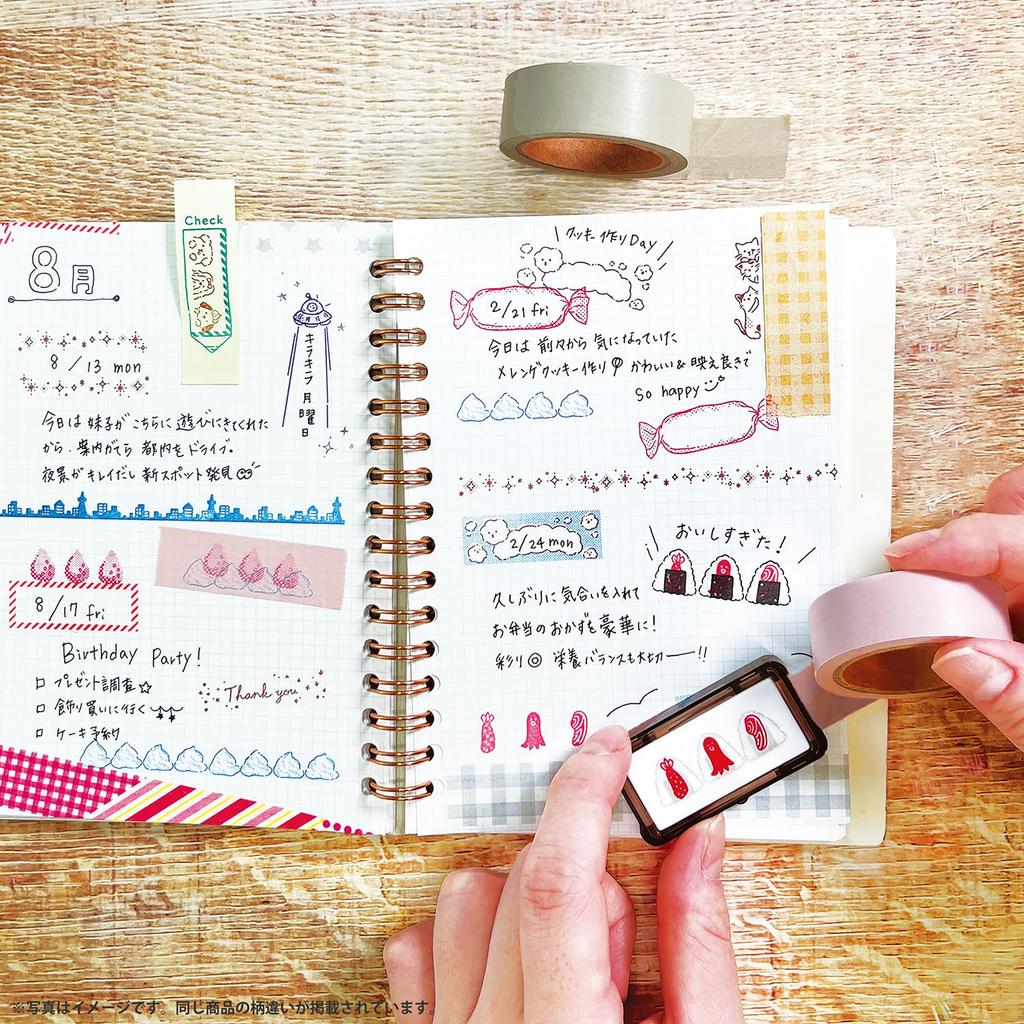 Check
8月
8/13 mon
キラキラ月曜日
今日は妹がこちらに遊びにきてくれた
から、案内がてら都内をドライブ。
夜景がキレイだし新スポット発見
8/17 fri
Birthday Party!
□ プレゼント調査☆
□ 飾り買いに行く
□ ケーキ予約
Thank you
クッキー作りDay
2/21 fri
今日は前々から気になっていた
メレンゲクッキー作り かわいい&映え良きで
So happy
2/24 mon
おいしすぎた!
久しぶりに気合いを入れて
お弁当のおかずを豪華に!
彩り◎ 栄養バランスも大切ー!!
※写真はイメージです。同じ商品の柄違いが掲載されています。